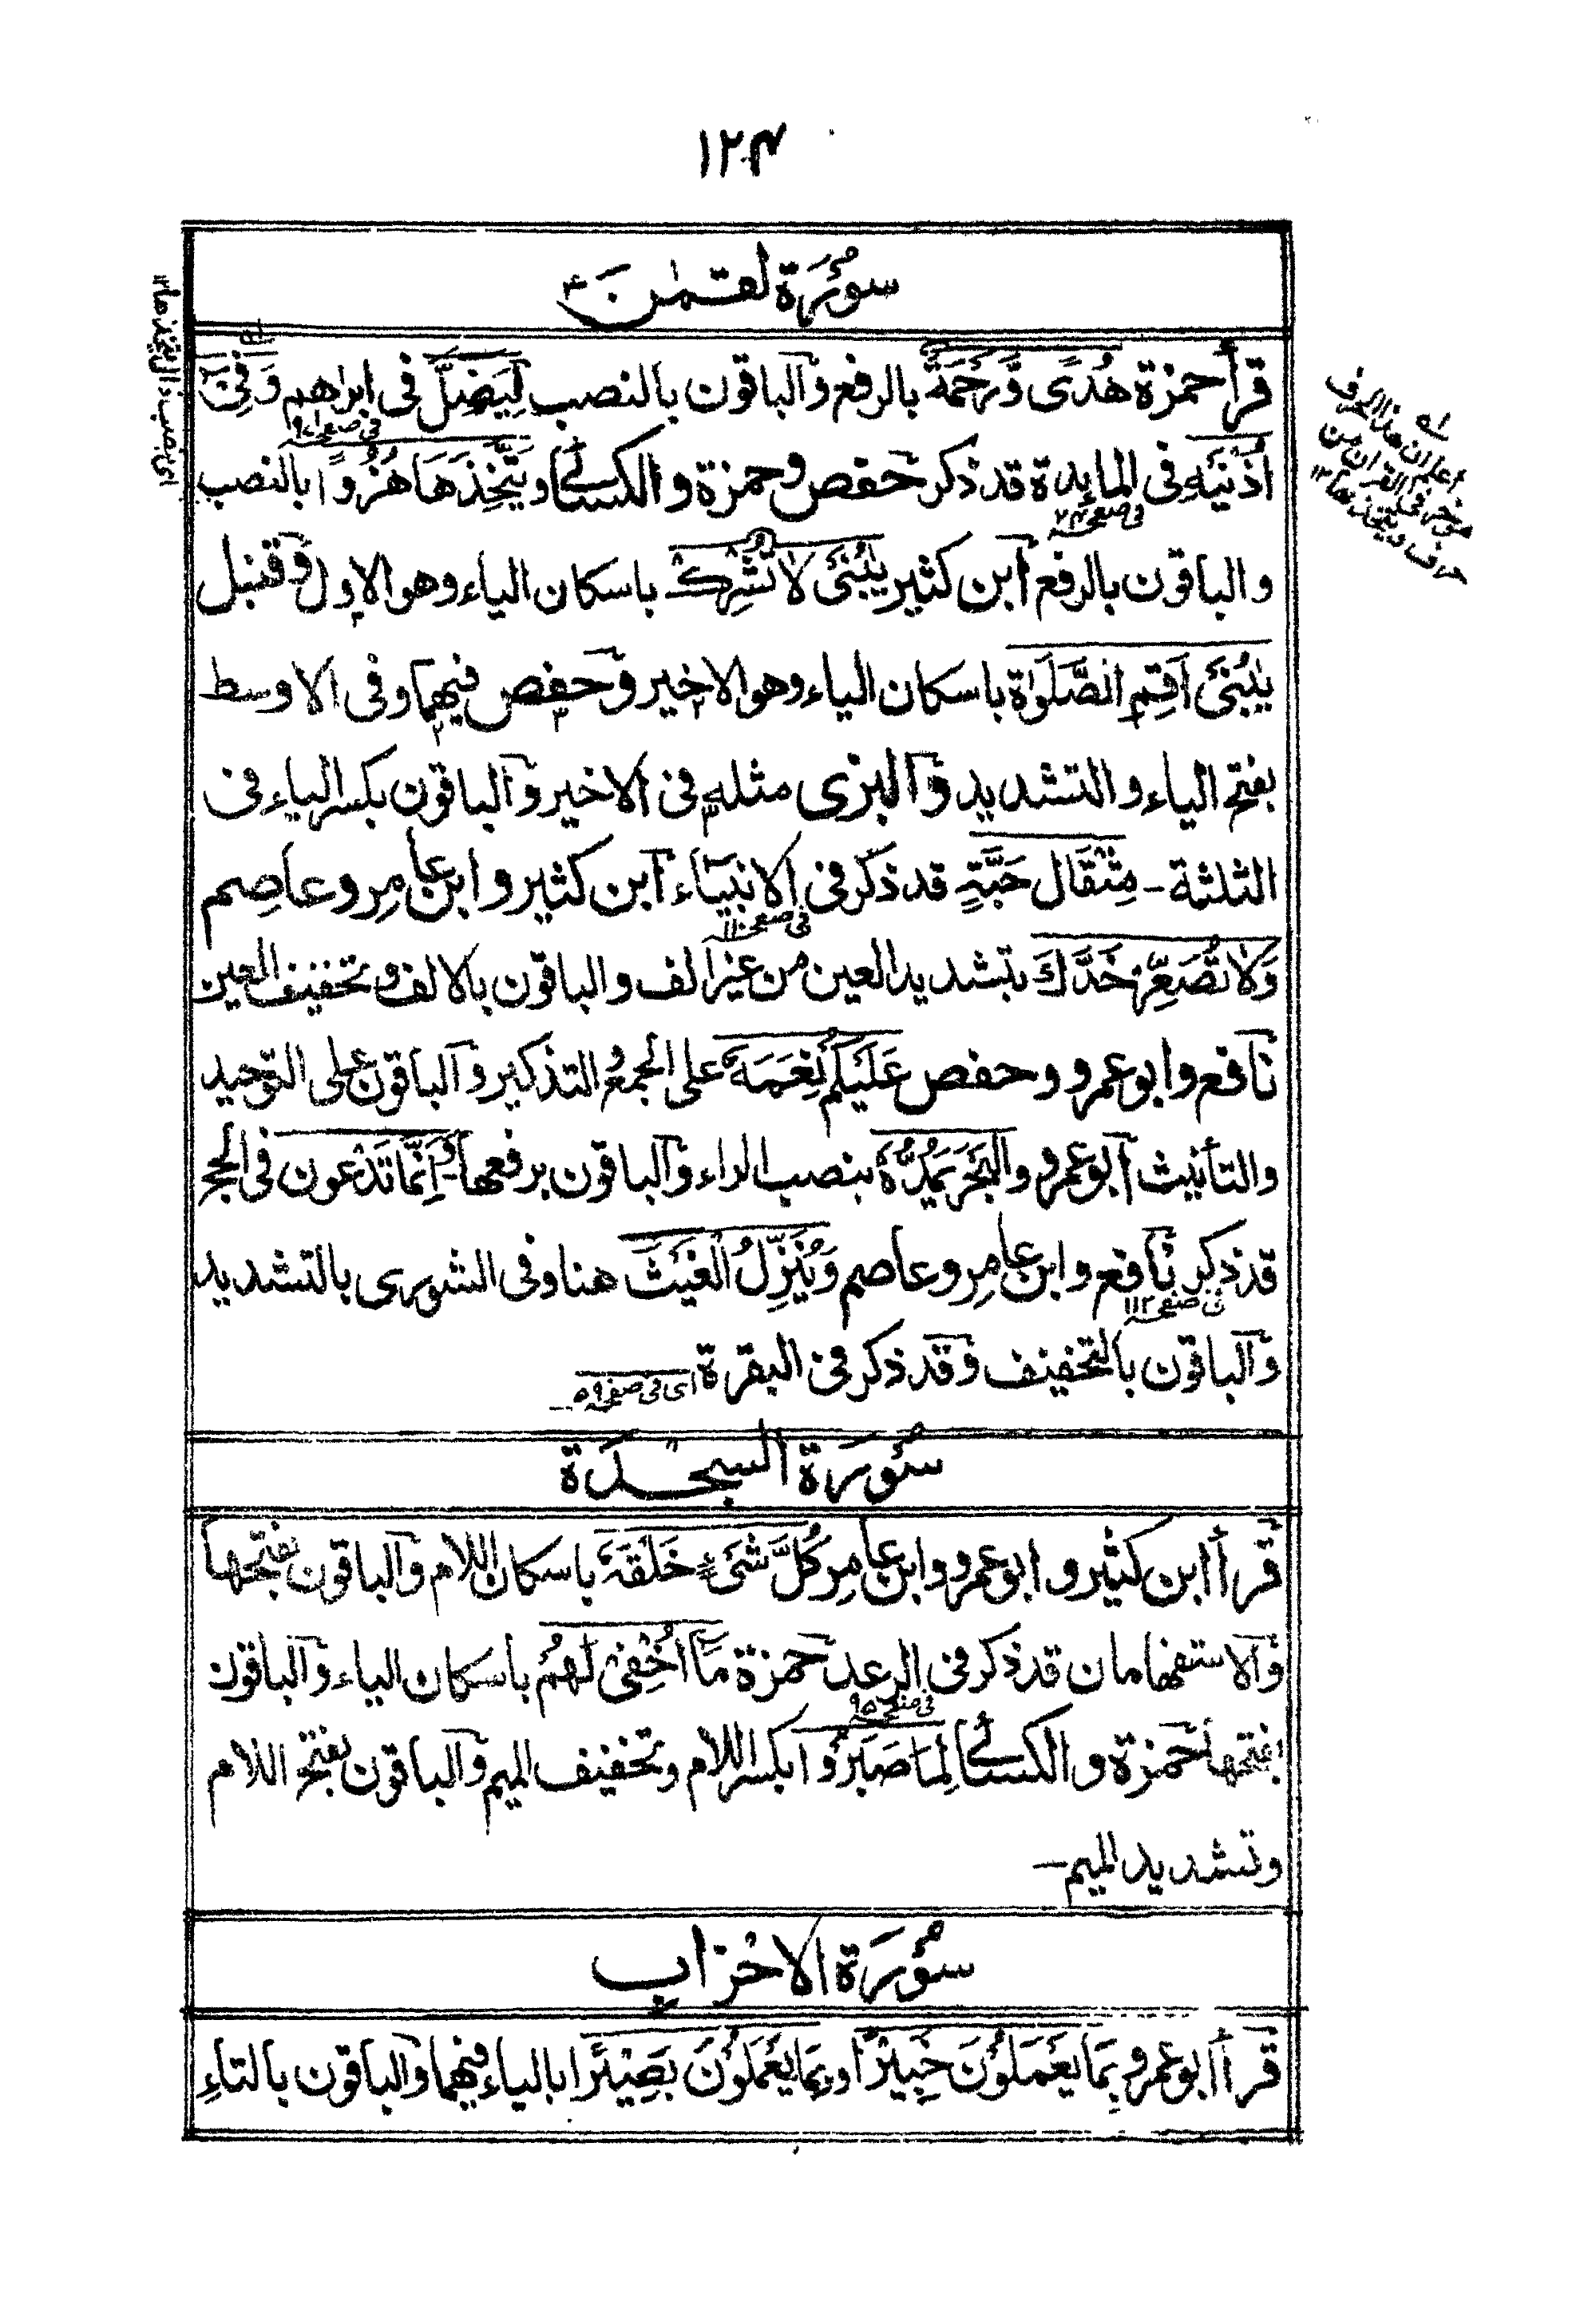 ١٢٤
سُوْرَة لقمٰن
قرأ حمزة هُدًى وَّرَحْمَةً بالرفع والباقون بالنصب لِيُضِلَّ فى ابراهيم وَفِىْٓ
فى صفحه ٩٧
اُذُنَيْهِ فى المايدة قد ذكر حفص وحمزة والكسائى ويتَّخِذَهَا هُزُوًا بالنصب
فى صفحه ٧٤
والباقون بالرفع ابن كثير يٰبُنَىْ لَا تُشْرِكْ باسكان الياء وهو الاول وقنبل
يٰبُنَىْ اَقِمِ الصَّلٰوةَ باسكان الياء وهو الاخير وحفص فيهما وفى الاوسط
بفتح الياء والتشديد والبزى مثله فى الاخير والباقون بكسر الياء فى
الثلثة - مِثْقَالَ حَبَّةٍ قد ذكر فى الانبياء ابن كثير وابن عامر وعاصم
فى صفحه ١١٠
وَلَا تُصَعِّرْ خَدَّكَ بتشديد العين من غير الف والباقون بالالف وتخفيف العين
نافع وابو عمرو وحفص عَلَيْكُمْ نِعَمَهٗ على الجمع والتذكير والباقون على التوحيد
والتأنيث ابو عمرو والبَحْرَ يَمُدُّهٗ بنصب الراء والباقون برفعها وَاَنَّمَا تَدْعون فى الحج
قد ذكر نافع وابن عامر وعاصم وَيُنَزِّلُ الْغَيْثَ هنا وفى الشورى بالتشديد
فى صفحه ١١٢
والباقون بالتخفيف وقد ذكر فى البقرة اى فى صفحه ٥٩
سُوْرَة السجدة
قرأ ابن كثير وابو عمرو وابن عامر كُلَّ شَىْءٍ خَلْقَهٗ باسكان اللام والباقون بفتحها
والاستفهامان قد ذكر فى الرعد حمزة مَّآ اُخْفِىْ لَهُمْ باسكان الياء والباقون
فى صفحه ٩٥
بفتحها حمزة والكسائى لِمَا صَبَرُوْا بكسر اللام وتخفيف الميم والباقون بفتح اللام
وتشديد الميم -
سُوْرَة الاحْزاب
قرأ ابو عمرو بِمَا يَعْمَلُوْنَ خَبِيْرًا وبِمَا يَعْمَلُوْنَ بَصِيْرًا بالياء فيهما والباقون بالتاءِ
اعلم ان هذا الحرف
مؤخر فى القران من
حرف ويتخذها ١٢
اى بنصب ذال يتخذها ١٢